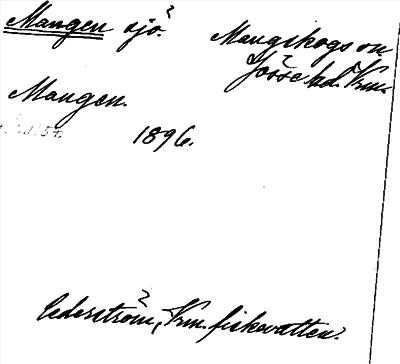 Mangen sjö. Mangskogs sn.
Jösse hd. Vrm.
Mangen.
1896.
Cederström, Vrm. fiskevatten.